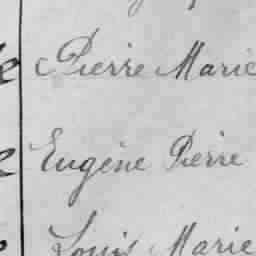 Pierre Marie
Eugène Pierre
Louis Marie